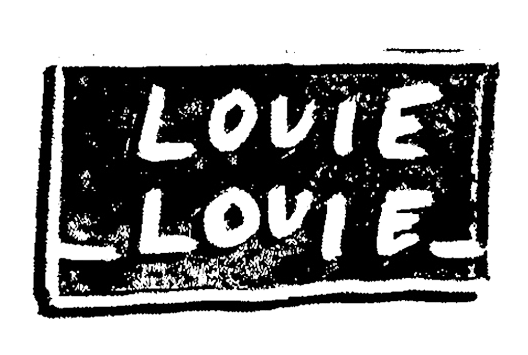 LOUIE
LOUIE